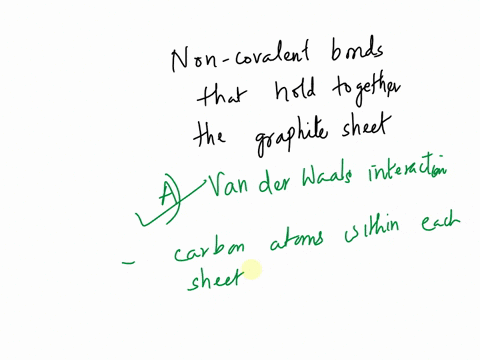 Non-covalent bonds
that hold together
the graphite sheet
A) Van der Waals interaction
- carbon atoms within each
sheet